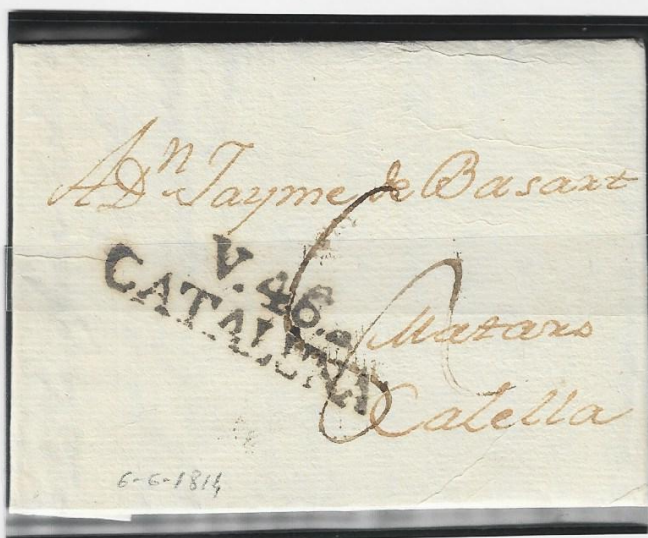 A Dn Jayme de Basart
V.46.a
CATALUÑA
Mataro
Calella
6-6-1814